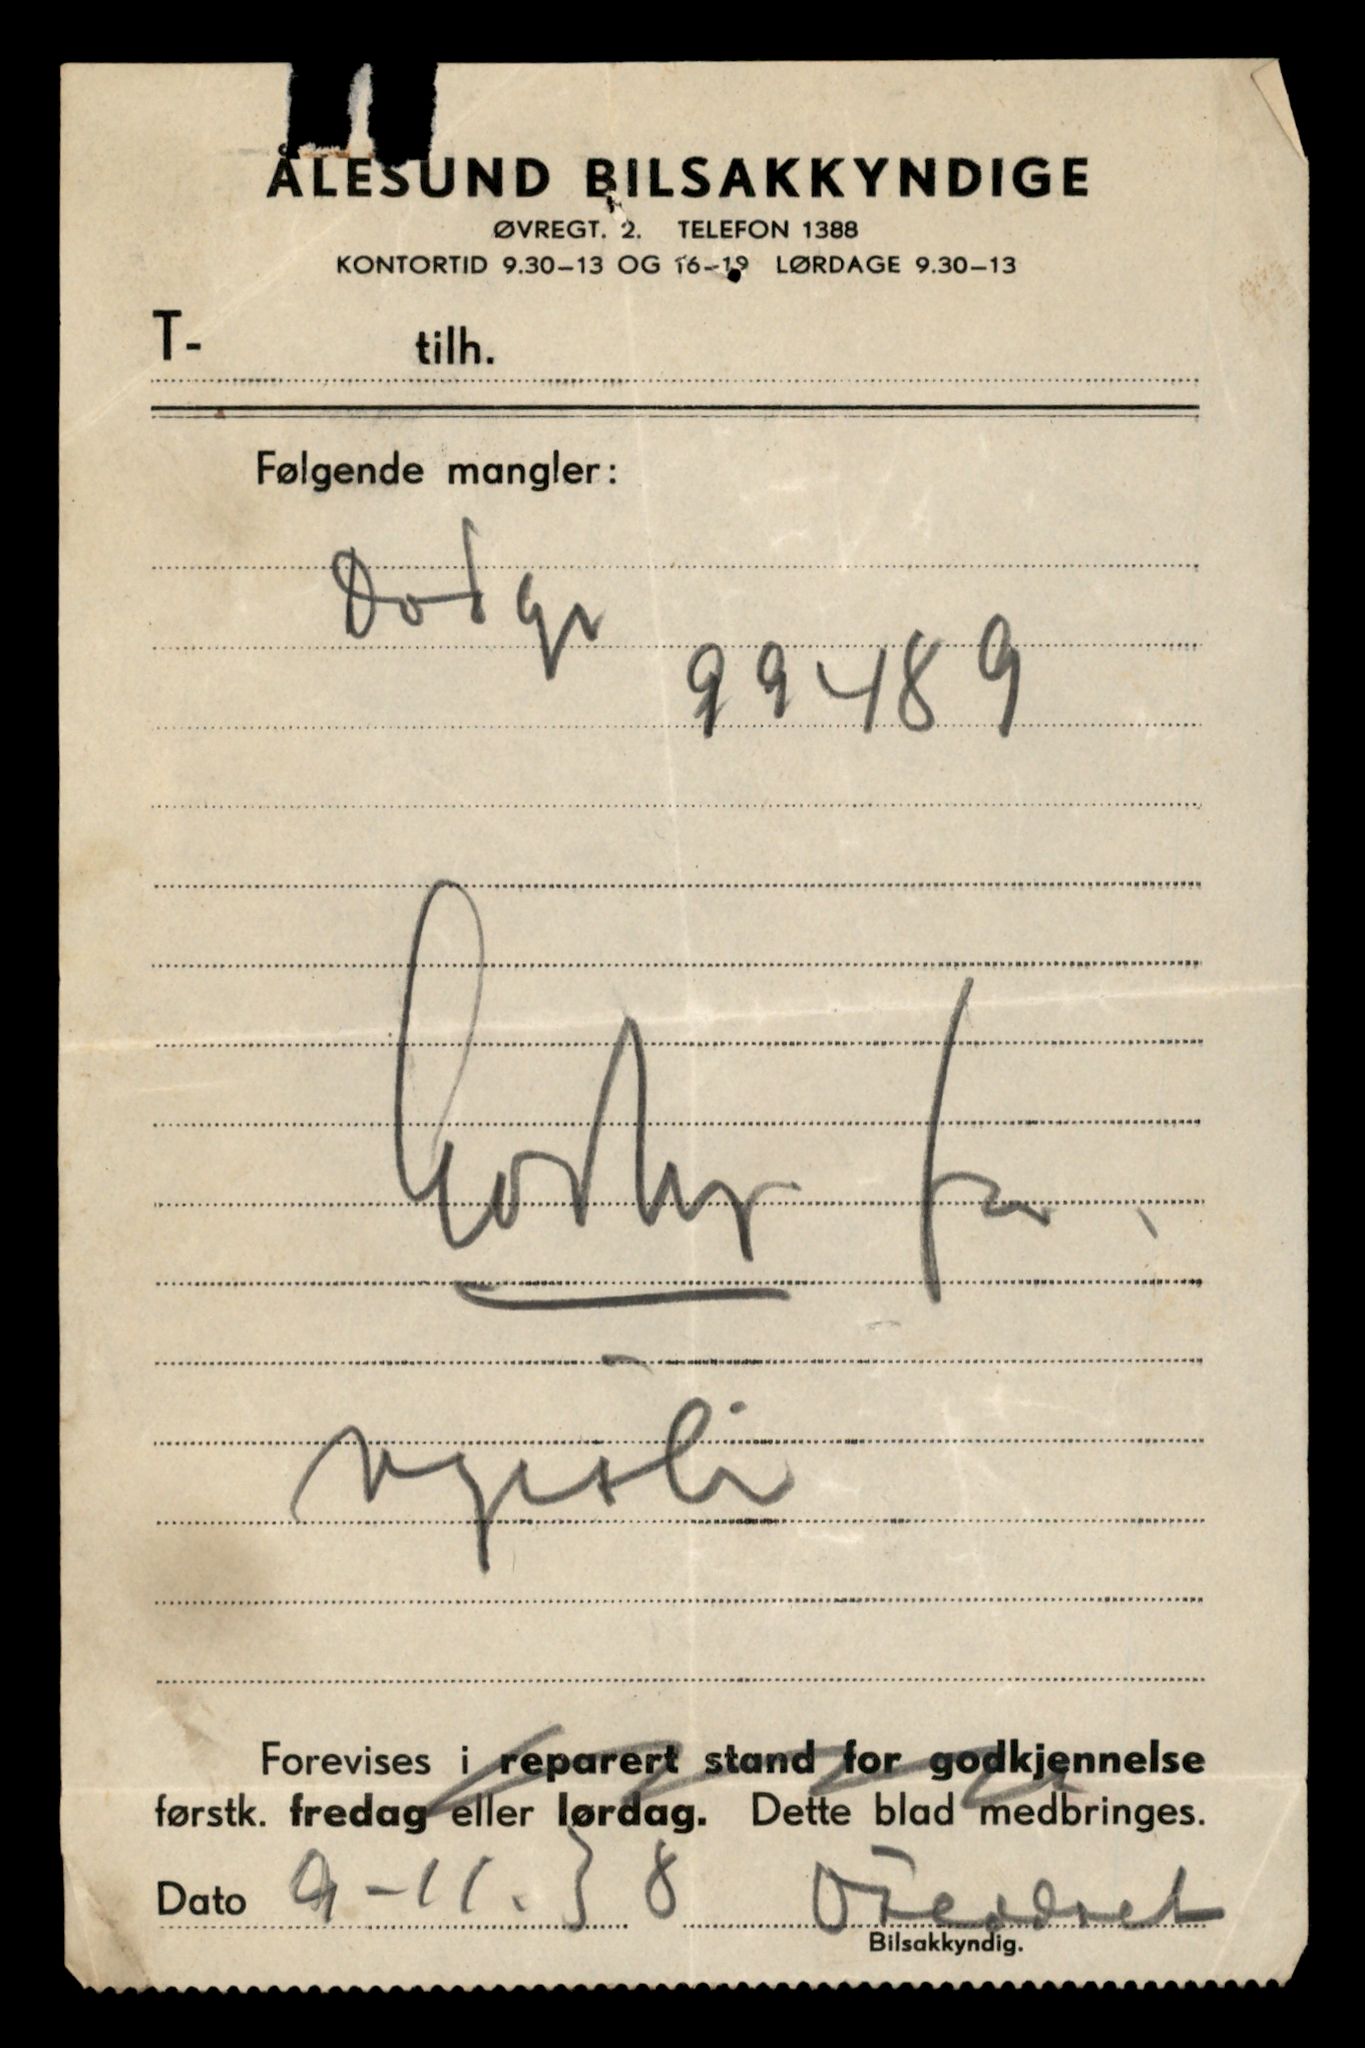 ÅLESUND BILSAKKYNDIGE
ØVREGT. 2. TELEFON 1388
KONTORTID 9.30–13 OG 16–19 LØRDAGE 9.30–13
T- tilh.
Følgende mangler:
Dodge
99489
Forevises i reparert stand for godkjennelse
førstk. fredag eller lørdag. Dette blad medbringes.
Dato 9-11.38
Bilsakkyndig.